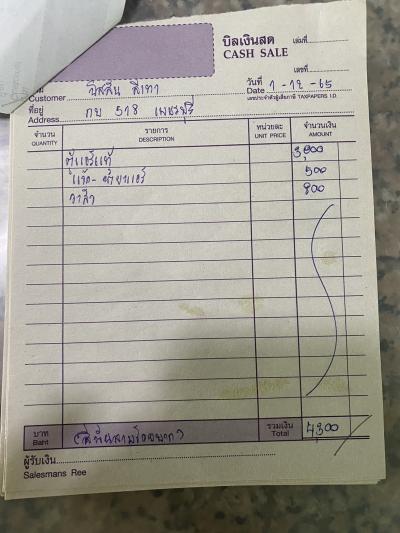 บิลเงินสด เล่มที่
CASH SALE
เลขที่
Customer นิสสัน สีเทา วันที่ 1-12-65
Date
ที่อยู่ กย 518 เพชรบุรี เลขประจำตัวผู้เสียภาษี TAXPAPERS I.D.
Address
จำนวน รายการ หน่วยละ จำนวนเงิน
QUANTITY DESCRIPTION UNIT PRICE AMOUNT
ตู้แอร์แท้ 3,000
500
วาล์ว 800
บาท (สี่พันสามร้อยบาท) รวมเงิน 4,300
Baht Total
ผู้รับเงิน
Salesmans Ree